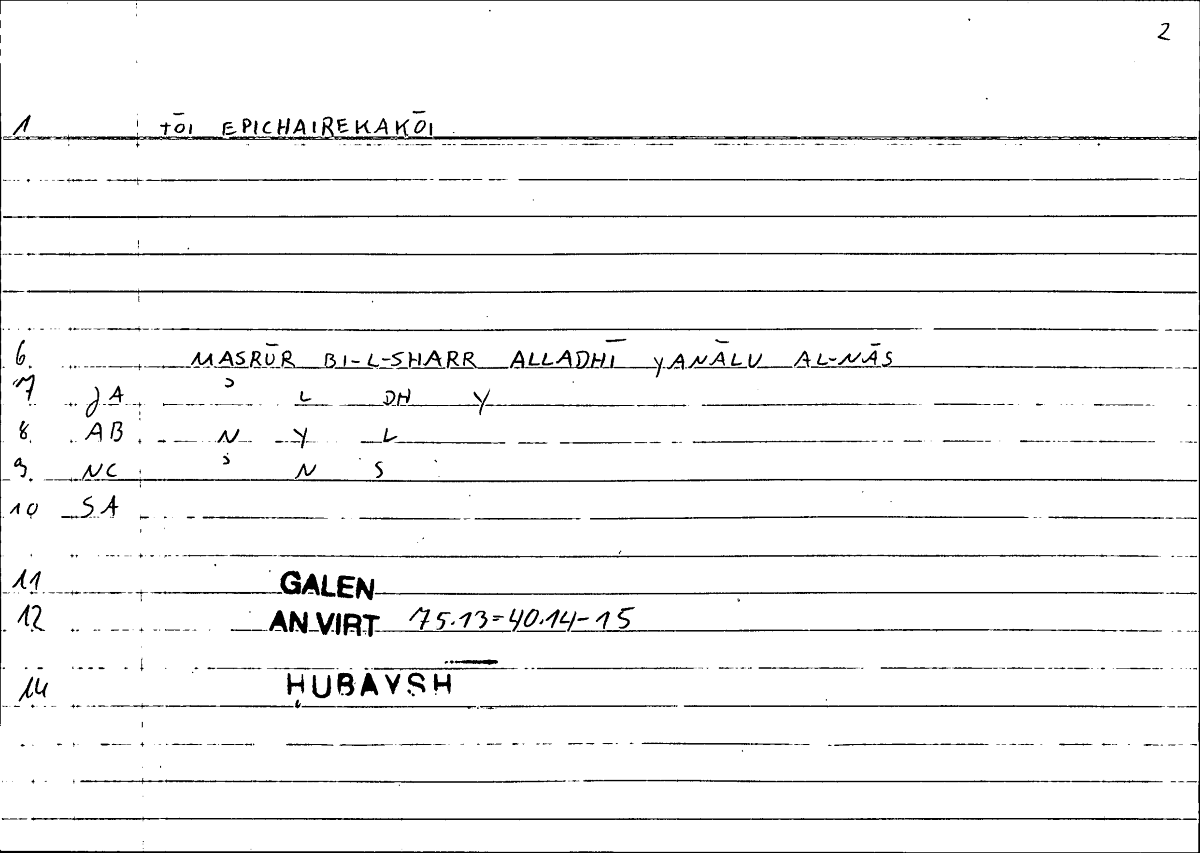 2
1 TŌI EPICHAIREKAKŌI
6. MASRŪR BI-L-SHARR ALLADHĪ YANĀLU AL-NĀS
7 JA ʾ L DH Y
8. AB N Y L
9. NC ʾ N S
10 SA
11 GALEN
12 AN VIRT 75.13=40.14-15
14 ḤUBAYSH